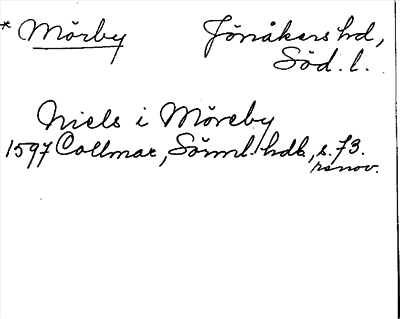 * Mörby Jönåkers hd,
Söd. l.
Niels i Möreby
1597 Collmar, Sörml. hdl., s. 73.
renov.